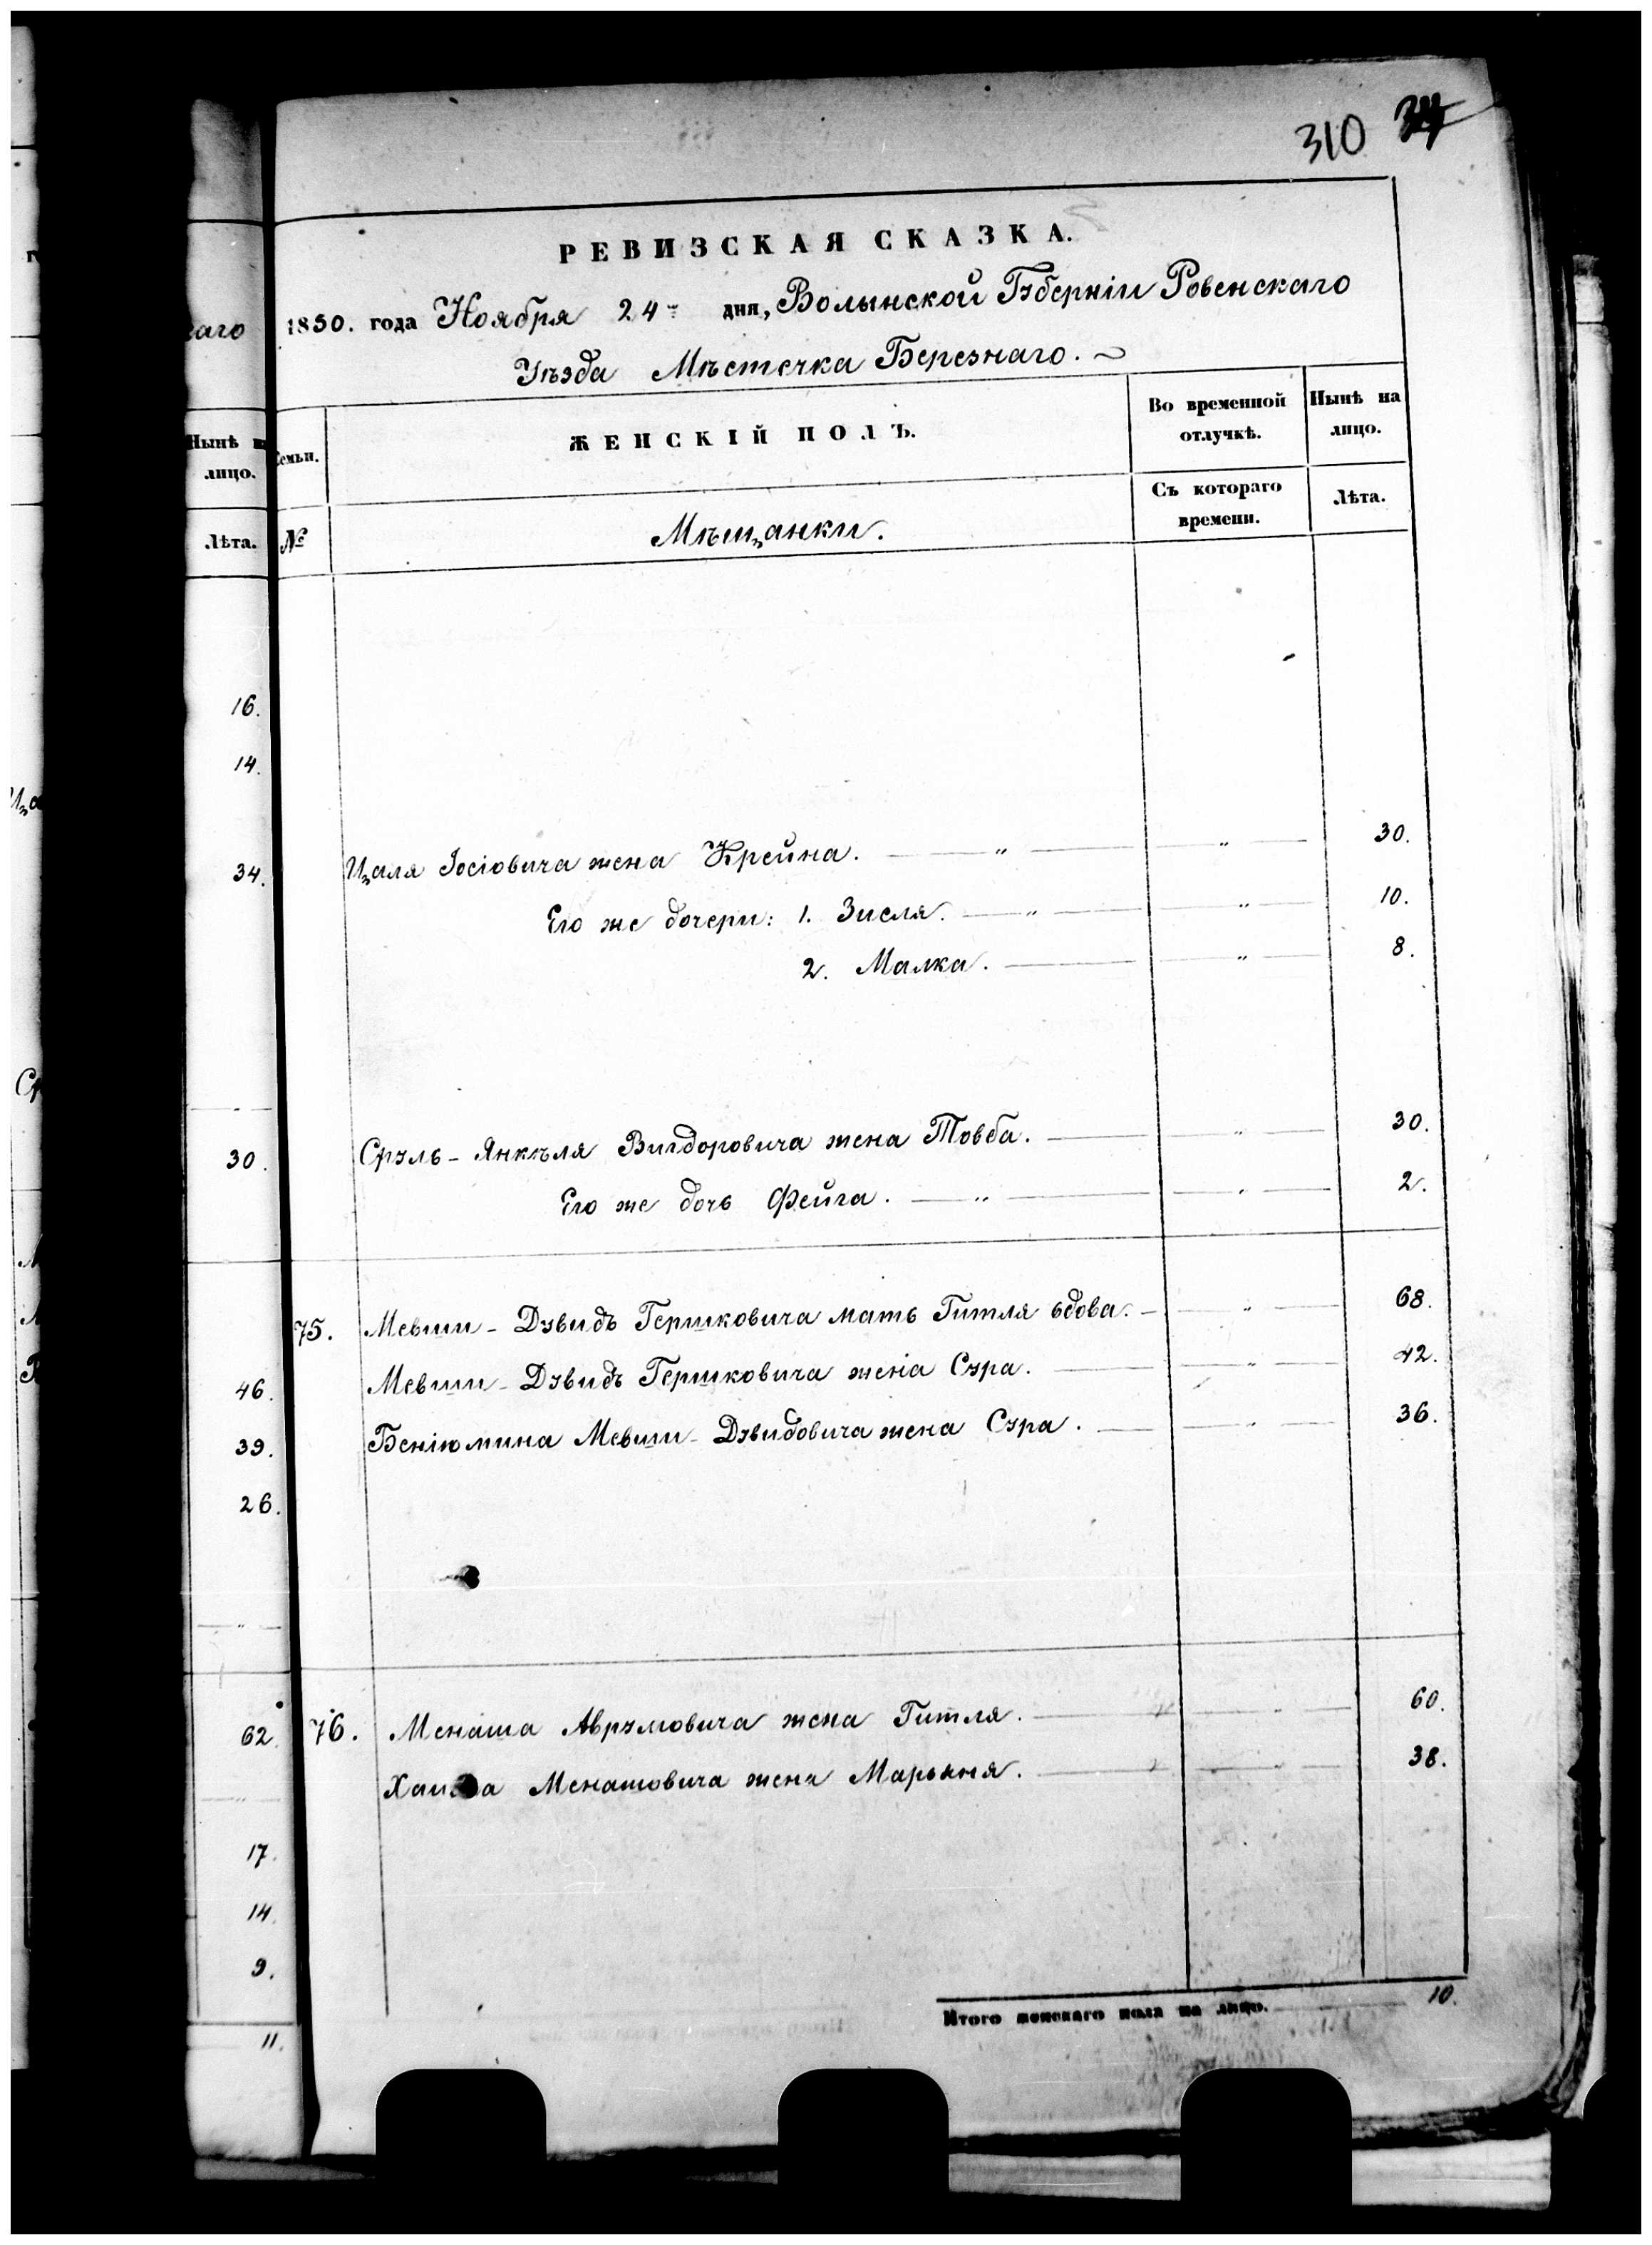 310
РЕВИЗСКАЯ СКАЗКА.
1850. года Ноября 24 дня, Волынской Губерніи Ровенскаго
Уѣзда Мѣстечка Березнаго.
аго
Нынѣ
лицо.
Лѣта.
Семьи.
№
ЖЕНСКІЙ ПОЛЪ.
Мѣщанки.
Во временной
отлучкѣ.
Съ котораго
времени.
Нынѣ на
лицо.
Лѣта.
16.
14.
34. Цаля Іосіовича жена Крейна. " " 30.
Его же дочери: 1. Зисля. " " 10.
2. Малка. " 8.
30. Сруль-Янкѣля Вигдоровича жена Товба. " 30.
Его же дочь Фейга. " " 2.
75. Мевши-Дувидъ Гершковича мать Гитля вдова. " 68.
46. Мевши-Дувидъ Гершковича жена Сура. " 42.
39. Беніюмина Мевши-Дувидовича жена Сура. " 36.
26.
62. 76. Менаша Аврумовича жена Гитля. 60.
Менашовича жена Марьяня. 38.
17.
14.
9.
Итого женскаго пола на лицо. 10.
11.